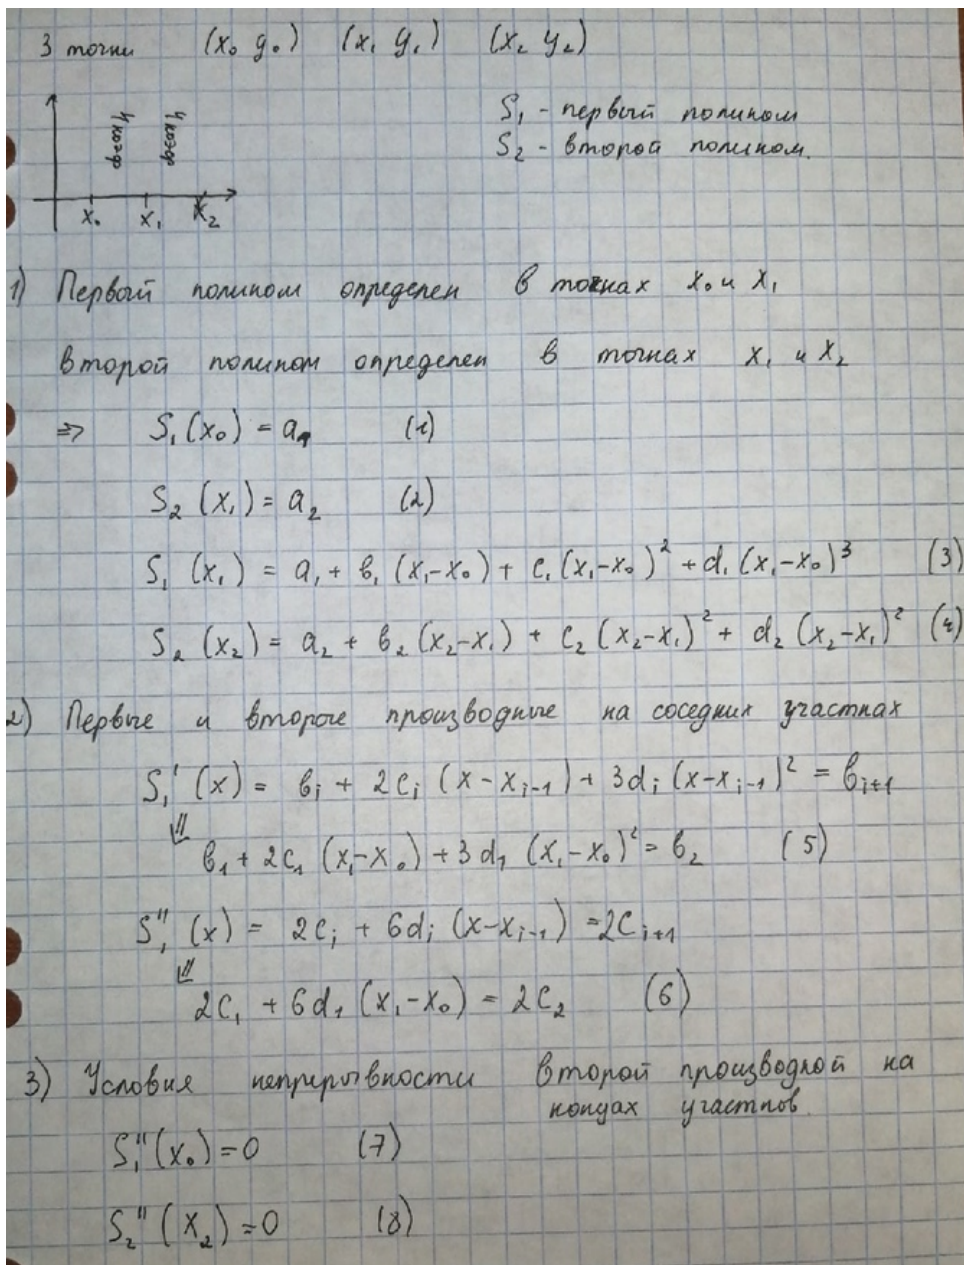 3 точки (x₀ y₀) (x₁ y₁) (x₂ y₂)
4 коэфф 4 коэфф
S₁ - первый полином
S₂ - второй полином.
x₀ x₁ x₂
1) Первый полином определен в точках x₀ и x₁
второй полином определен в точках x₁ и x₂
=> S₁(x₀) = a₁ (1)
S₂(x₁) = a₂ (2)
S₁(x₁) = a₁ + b₁(x₁-x₀) + c₁(x₁-x₀)² + d₁(x₁-x₀)³ (3)
S₂(x₂) = a₂ + b₂(x₂-x₁) + c₂(x₂-x₁)² + d₂(x₂-x₁)² (4)
2) Первые и вторые производные на соседних участках
Sᵢ'(x) = bᵢ + 2cᵢ(x-xᵢ₋₁) + 3dᵢ(x-xᵢ₋₁)² = bᵢ₊₁
⇓
b₁ + 2c₁(x₁-x₀) + 3d₁(x₁-x₀)² = b₂ (5)
Sᵢ''(x) = 2cᵢ + 6dᵢ(x-xᵢ₋₁) = 2cᵢ₊₁
⇓
2c₁ + 6d₁(x₁-x₀) = 2c₂ (6)
3) Условия непрерывности второй производной на
концах участков.
S₁''(x₀) = 0 (7)
S₂''(x₂) = 0 (8)